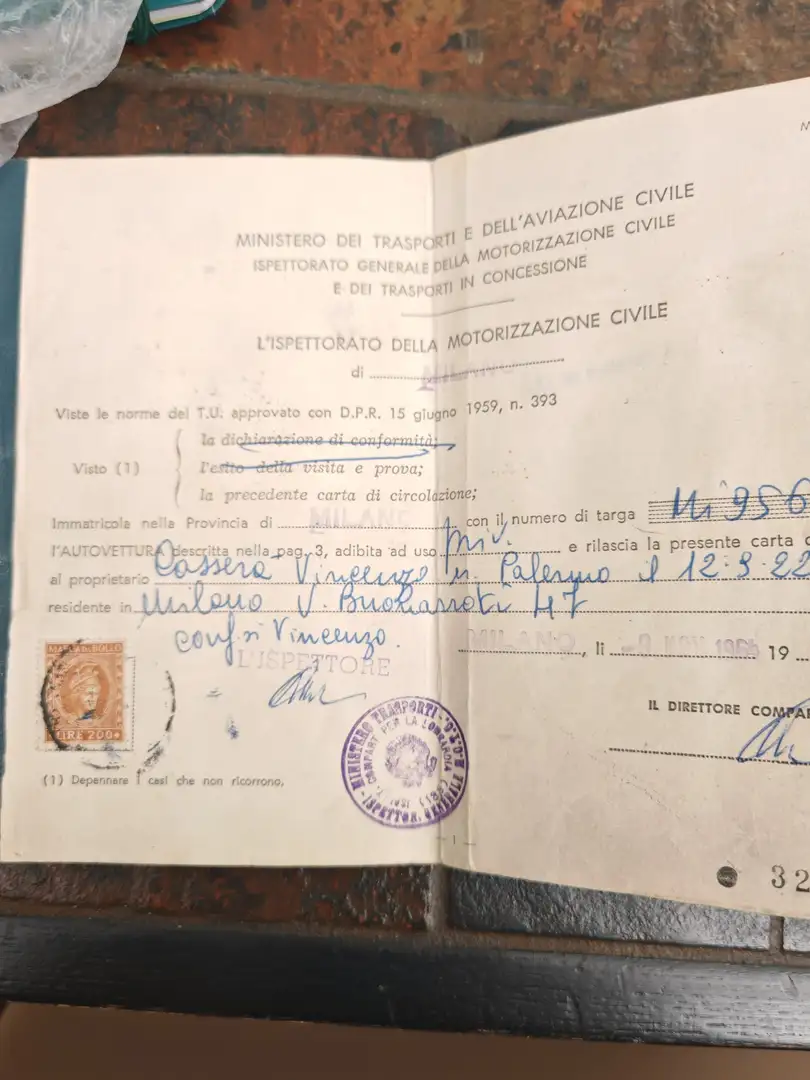 MINISTERO DEI TRASPORTI E DELL'AVIAZIONE CIVILE
ISPETTORATO GENERALE DELLA MOTORIZZAZIONE CIVILE
E DEI TRASPORTI IN CONCESSIONE
L'ISPETTORATO DELLA MOTORIZZAZIONE CIVILE
di
Viste le norme del T.U. approvato con D.P.R. 15 giugno 1959, n. 393
la dichiarazione di conformità;
Visto (1) l'esito della visita e prova;
la precedente carta di circolazione;
Immatricola nella Provincia di MILANO con il numero di targa Mi 956
l'AUTOVETTURA descritta nella pag. 3, adibita ad uso priv. e rilascia la presente carta
al proprietario Cassera Vincenzo n. Palermo il 12.9.22
residente in Milano V. Buonarroti 47
conf. si Vincenzo.
MILANO, li 19
L'ISPETTORE
MARCA DA BOLLO
LIRE 200
IL DIRETTORE
MINISTERO TRASPORTI
COMPART PER LA LOMBARDIA
(1) Depennare i casi che non ricorrono.
1
32